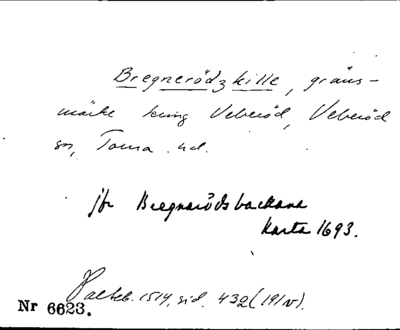 Bregnerödz kille, gräns-
märke kring Veberöd, Veberöd
sn, Torna hd.
jfr Bregnarödsbackana
Karta 1693.
Palteb. 1514, sid. 432 (19/IV).
Nr 6623.